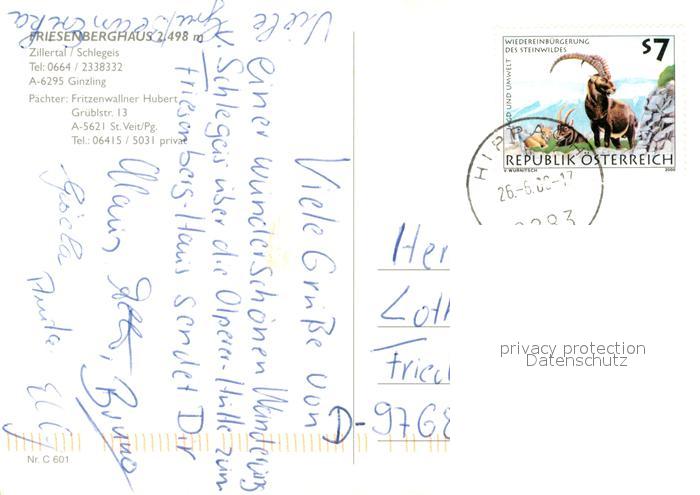 FRIESENBERGHAUS 2,498 m
Zillertal / Schlegeis
Tel: 0664 / 2338332
A-6295 Ginzling
Pächter: Fritzenwallner Hubert
Grüblstr. 13
A-5621 St.Veit/Pg.
Tel.: 06415 / 5031 privat
Viele Grüße von
einer wunderschönen Wanderung
v. Schlegeis über die Olperer-Hütte zum
Friesenberg-Haus sendet Dir
Bruno
Gisela
Viele
Nr. C 601
WIEDEREINBÜRGERUNG
DES STEINWILDES
JAGD UND UMWELT
S7
REPUBLIK ÖSTERREICH
V. WURNITSCH
2000
HIPPACH
26.-6.00-17
6283
Her
Loth
Fried
D-9768
privacy protection
Datenschutz